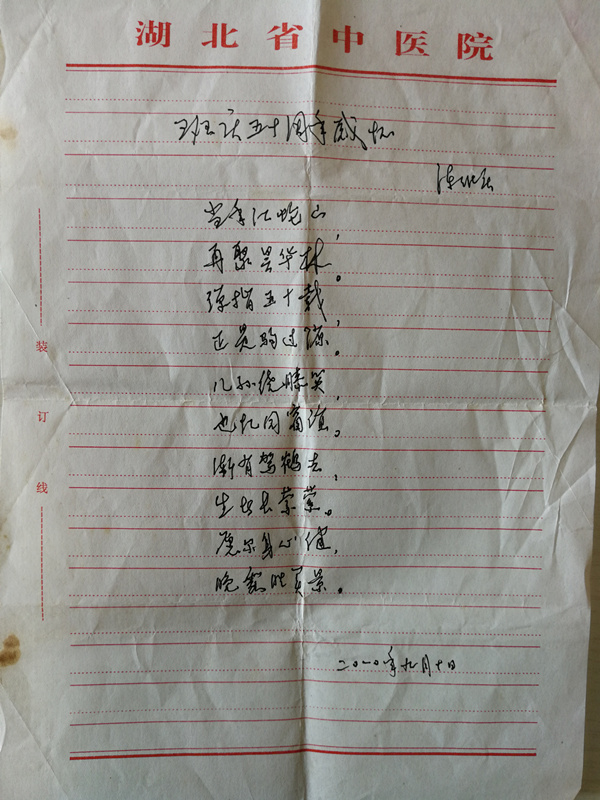 湖北省中医院
班庆五十周年感怀
陈
当年江蛇山，
再聚昙华林。
弹指五十载，
正是驹过隙。
儿孙绕膝笑，
也忆同窗谊。
渐有驾鹤去，
生者长萦萦。
愿尔身心健，
晚霞胜美景。
二〇一〇年九月十日
装订线